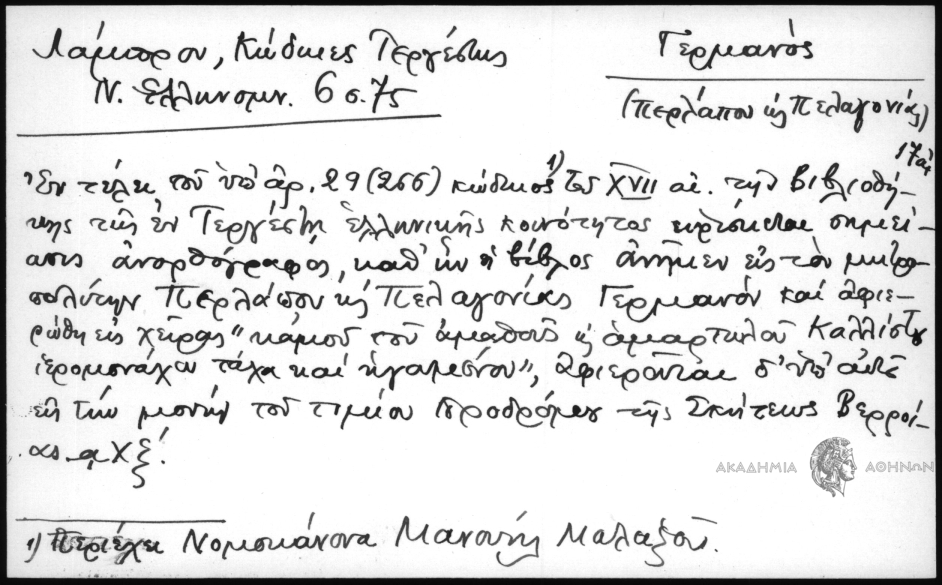 Λάμπρου, Κώδικες Τεργέστης
Ν. Ἑλληνομν. 6 σ. 75
Γερμανός
(Περλάπου κ Πελαγονίας)
17ος
Ἐν τέλει τοῦ ὑπ' ἀρ. 29 (266) κώδικος 1) τοῦ XVII αἰ. τῆς Βιβλιοθή-
κης τῆς ἐν Τεργέστῃ ἑλληνικῆς κοινότητος εὑρίσκεται σημεί-
ωσις ἀνορθόγραφος, καθ' ἣν ἡ βίβλος ἀνῆκεν εἰς τὸν μητρο-
πολίτην Περλάπου κ Πελαγονίας Γερμανόν καί ἀφιε-
ρώθη εἰς χεῖρας "κἀμοῦ τοῦ ἀμαθοῦς κ ἁμαρτωλοῦ Καλλίστου
ἱερομονάχου τάχα καί ἡγουμένου", ἀφιεροῦται δ' ὑπ' αὐτοῦ
εἰς τήν μονήν τοῦ τιμίου Προδρόμου τῆς Σκήτεως Βερροί-
ας αχξ́.
ΑΚΑΔΗΜΙΑ ΑΘΗΝΩΝ
1) Περιέχει Νομοκάνονα Μανουήλ Μαλαξοῦ.